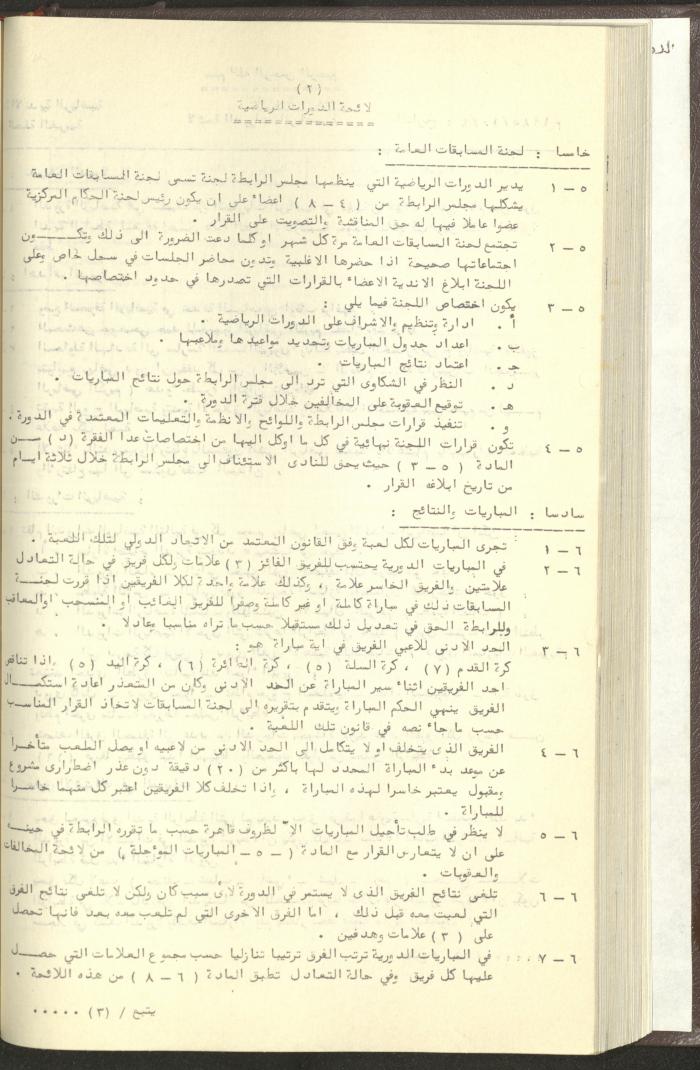 (٢)
لائحة الدورات الرياضية
خامسا : لجنة المسابقات العامة :
٥ – ١ يدير الدورات الرياضية التي ينظمها مجلس الرابطة لجنة تسمى لجنة المسابقات العامة
يشكلها مجلس الرابطة من ( ٤ – ٨ ) اعضاء على ان يكون رئيس لجنة الحكام المركزية
عضوا عاملا فيها له حق المناقشة والتصويت على القرار .
٥ – ٢ تجتمع لجنة المسابقات العامة مرة كل شهر او كلما دعت الضرورة الى ذلك وتكـــون
اجتماعاتها صحيحة اذا حضرها الاغلبية وتدون محاضر الجلسات في سجل خاص وعلى
اللجنة ابلاغ الاندية الاعضاء بالقرارات التي تصدرها في حدود اختصاصها .
٥ – ٣ يكون اختصاص اللجنة فيما يلي :
أ . ادارة وتنظيم والاشراف على الدورات الرياضية .
ب . اعداد جدول المباريات وتحديد مواعيدها وملاعبها .
جـ . اعتماد نتائج المباريات .
د . النظر في الشكاوى التي ترد الى مجلس الرابطة حول نتائج المباريات .
هـ . توقيع العقوبة على المخالفين خلال فترة الدورة .
و . تنفيذ قرارات مجلس الرابطة واللوائح والانظمة والتعليمات المعتمدة في الدورة .
٥ – ٤ تكون قرارات اللجنة نهائية في كل ما اوكل اليها من اختصاصات عدا الفقرة (د) مــن
المادة ( ٥ – ٣ ) حيث يحق للنادى الاستئناف الى مجلس الرابطة خلال ثلاثة ايــام
من تاريخ ابلاغه القرار .
سادسا : المباريات والنتائج :
٦ – ١ تجرى المباريات لكل لعبة وفق القانون المعتمد من الاتحاد الدولي لتلك اللعبة .
٦ – ٢ في المباريات الدورية يحتسب للفريق الفائز (٣) علامات ولكل فريق في حالة التعادل
علامتين والفريق الخاسر علامة ، وكذلك علامة واحدة لكلا الفريقين اذا قررت لجنــة
المسابقات ذلك في مباراة كاملة او غير كاملة وصفرا للفريق الغائب او المنسحب اوالمعاقب
وللرابطة الحق في تعديل ذلك مستقبلا حسب ما تراه مناسبا وعادلا .
٦ – ٣ الحد الادنى للاعبي الفريق في اية مباراة هو :
كرة القدم (٧) ، كرة السلة (٥) ، كرة الطائرة (٦) ، كرة اليد (٥) واذا تناقص
احد الفريقين اثناء سير المباراة عن الحد الادنى وكان من المتعذر اعادة استكمــال
الفريق ينهي الحكم المباراة ويتقدم بتقريره الى لجنة المسابقات لاتخاذ القرار المناسـب
حسب ما جاء نصه في قانون تلك اللعبة .
٦ – ٤ الفريق الذى يتخلف او لا يتكامل الى الحد الادنى من لاعبيه او يصل الملعب متأخـرا
عن موعد بدء المباراة المحدد لها باكثر من (٢٠) دقيقة دون عذر اضطرارى مشروع
ومقبول يعتبر خاسرا لهذه المباراة ، واذا تخلف كلا الفريقين اعتبر كل منهما خاسـرا
للمباراة .
٦ – ٥ لا ينظر في طلب تأجيل المباريات الا لظروف قاهرة حسب ما تقرره الرابطة في حينــه
على ان لا يتعارض القرار مع المادة ( – ٥ – المباريات المؤجلة ) من لائحة المخالفات
والعقوبات .
٦ – ٦ تلغى نتائج الفريق الذى لا يستمر في الدورة لاى سبب كان ولكن لا تلغى نتائج الفرق
التي لعبت معه قبل ذلك ، اما الفرق الاخرى التي لم تلعب معه بعد فانها تحصل
على (٣) علامات وهدفين .
٦ – ٧ في المباريات الدورية ترتب الفرق ترتيبا تنازليا حسب مجموع العلامات التي حصــل
عليها كل فريق وفي حالة التعادل تطبق المادة ( ٦ – ٨ ) من هذه اللائحة .
يتبع / (٣) .....